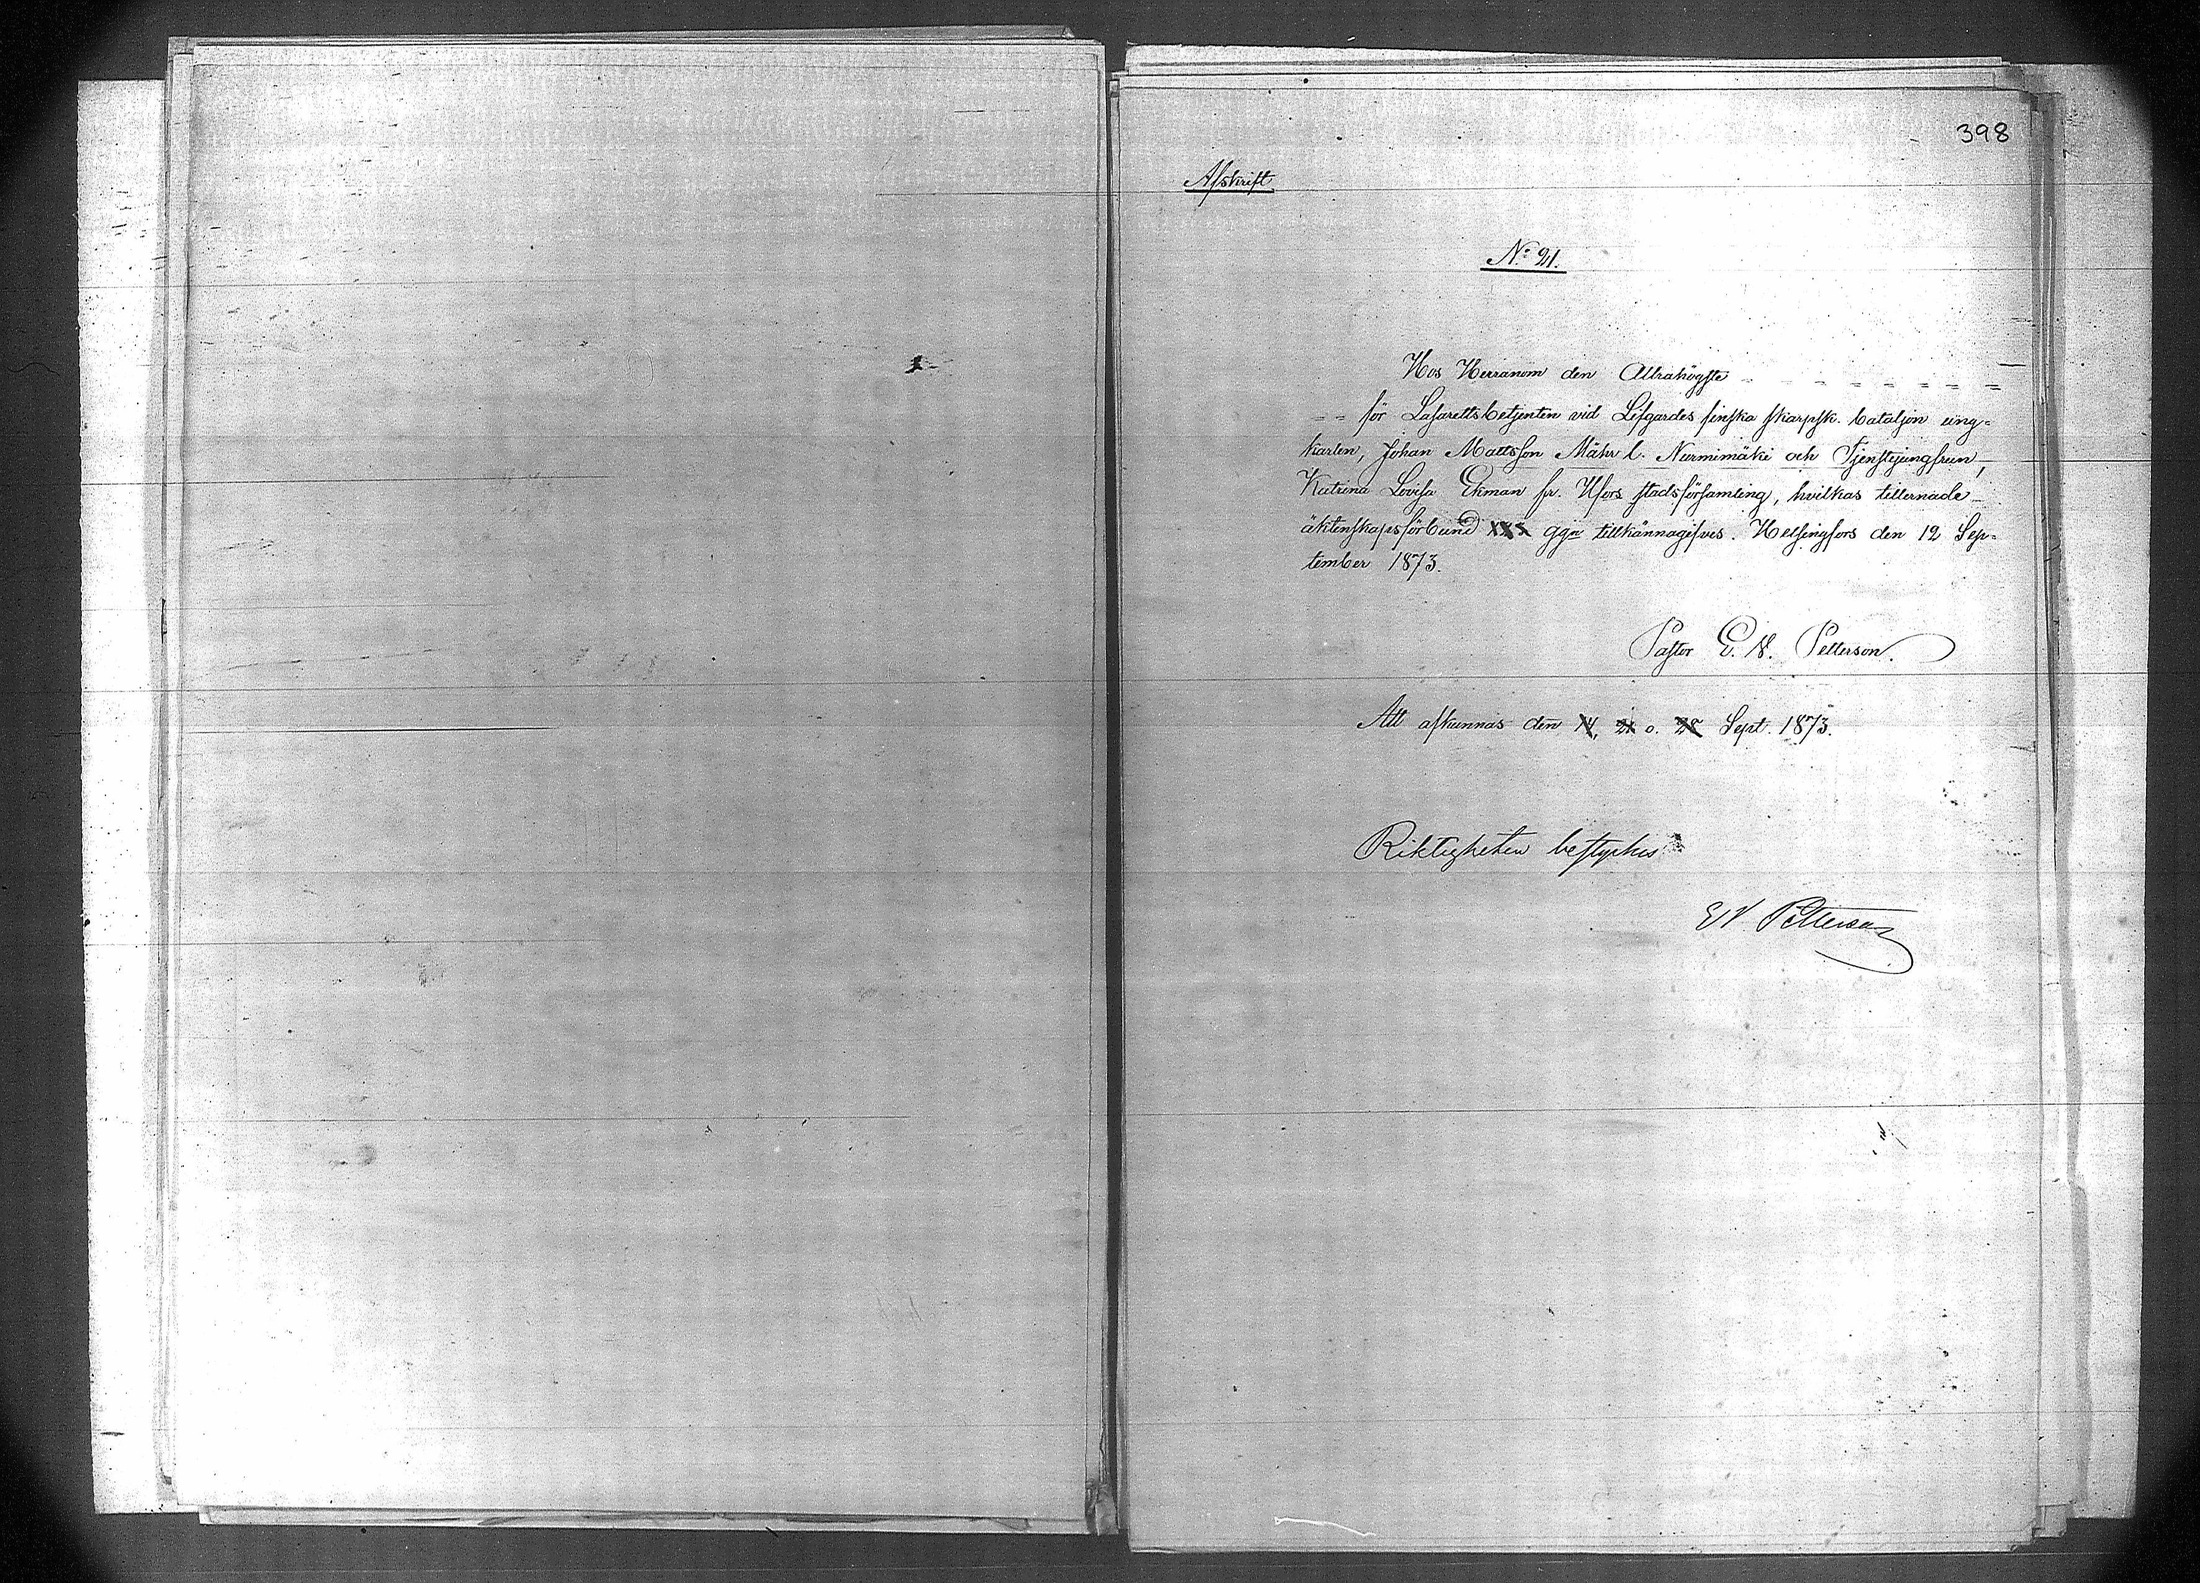 398
Afskrift
No 21.
Hos Herranom den Allrahögste - - - - - - - -
- - för Lasarettsbetjenten vid Lifgardes finska skarpsk. bataljon ung=
karlen, Johan Mattsson Mähr l. Nurmimäki och Tjenstejungfrun,
Katrina Lovisa Ekman fr. Hfors stadsförsamling, hvilkas tillernade
äktenskapsförbund xxx ggn tillkännagifves. Helsingfors den 12 Sep=
tember 1873.
Pastor E. N. Petterson.
Att afkunnas den 14, 21 o. 28 Sept. 1873.
Riktigheten bestyrkes
EN Petterson